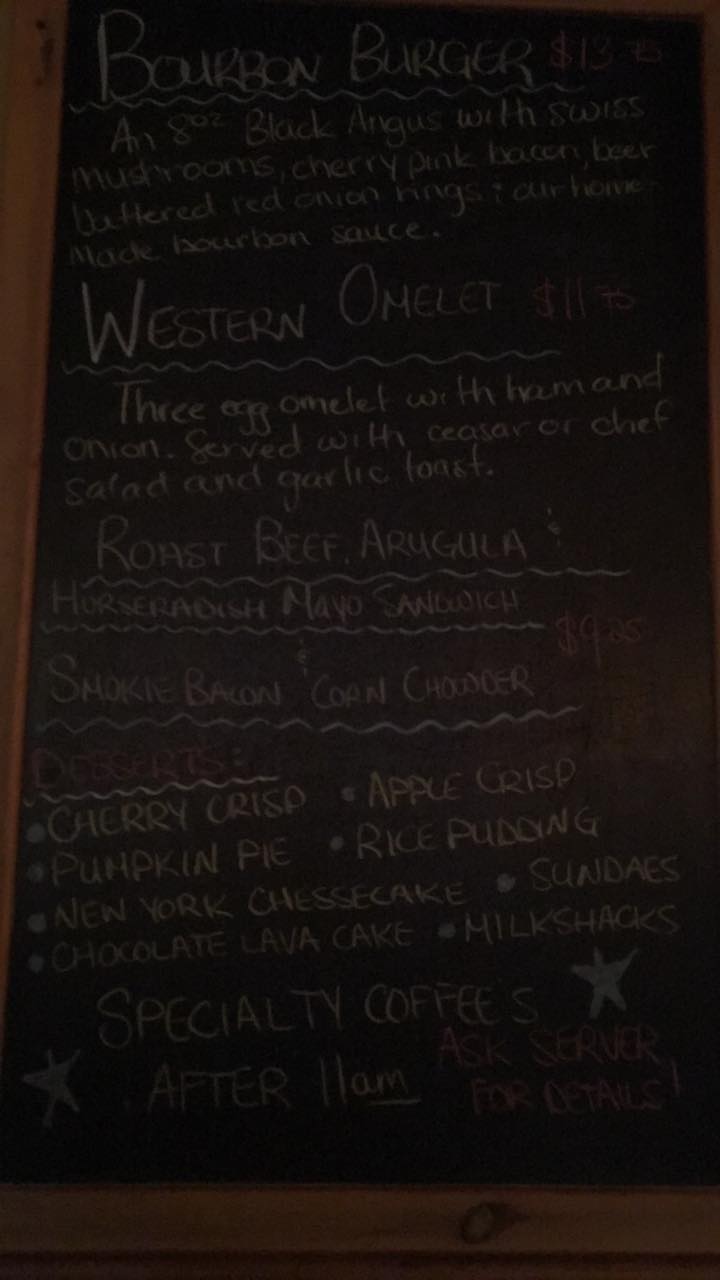 BOURBON BURGER $13.75
An 8oz Black Angus with swiss
mushrooms, cherry pink bacon, beer
battered red onion rings & our home-
Made bourbon sauce.
WESTERN OMELET $11.75
Three egg omelet with ham and
onion. Served with ceasar or chef
salad and garlic toast.
ROAST BEEF, ARUGULA &
HORSERADISH MAYO SANDWICH
$9.25
SMOKIE BACON & CORN CHOWDER
DESSERTS:
• CHERRY CRISP • APPLE CRISP
• PUMPKIN PIE • RICE PUDDING
• NEW YORK CHESSECAKE • SUNDAES
• CHOCOLATE LAVA CAKE • MILKSHACKS
SPECIALTY COFFEE'S
AFTER 11am
ASK SERVER
FOR DETAILS!